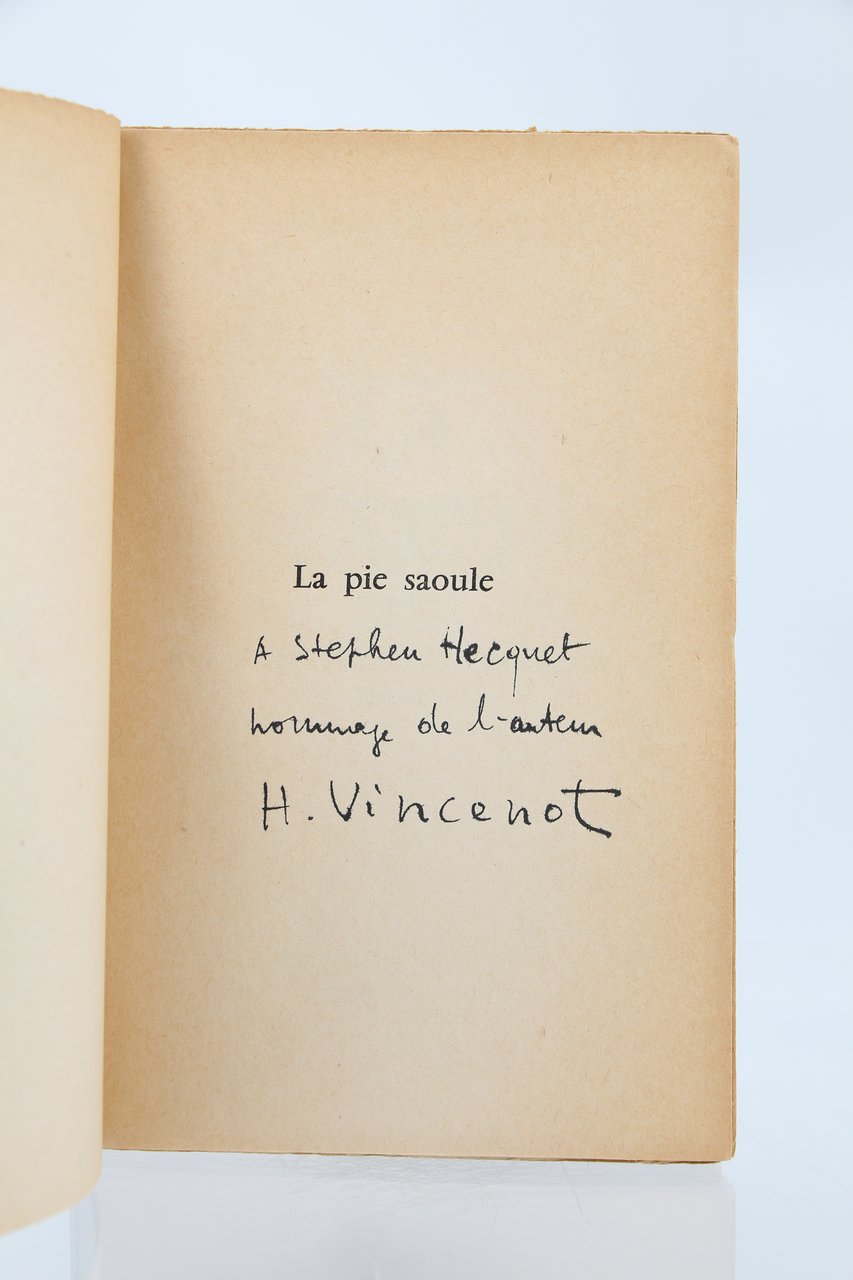 La pie saoule
A Stephen Hecquet
hommage de l'auteur
H. Vincenot